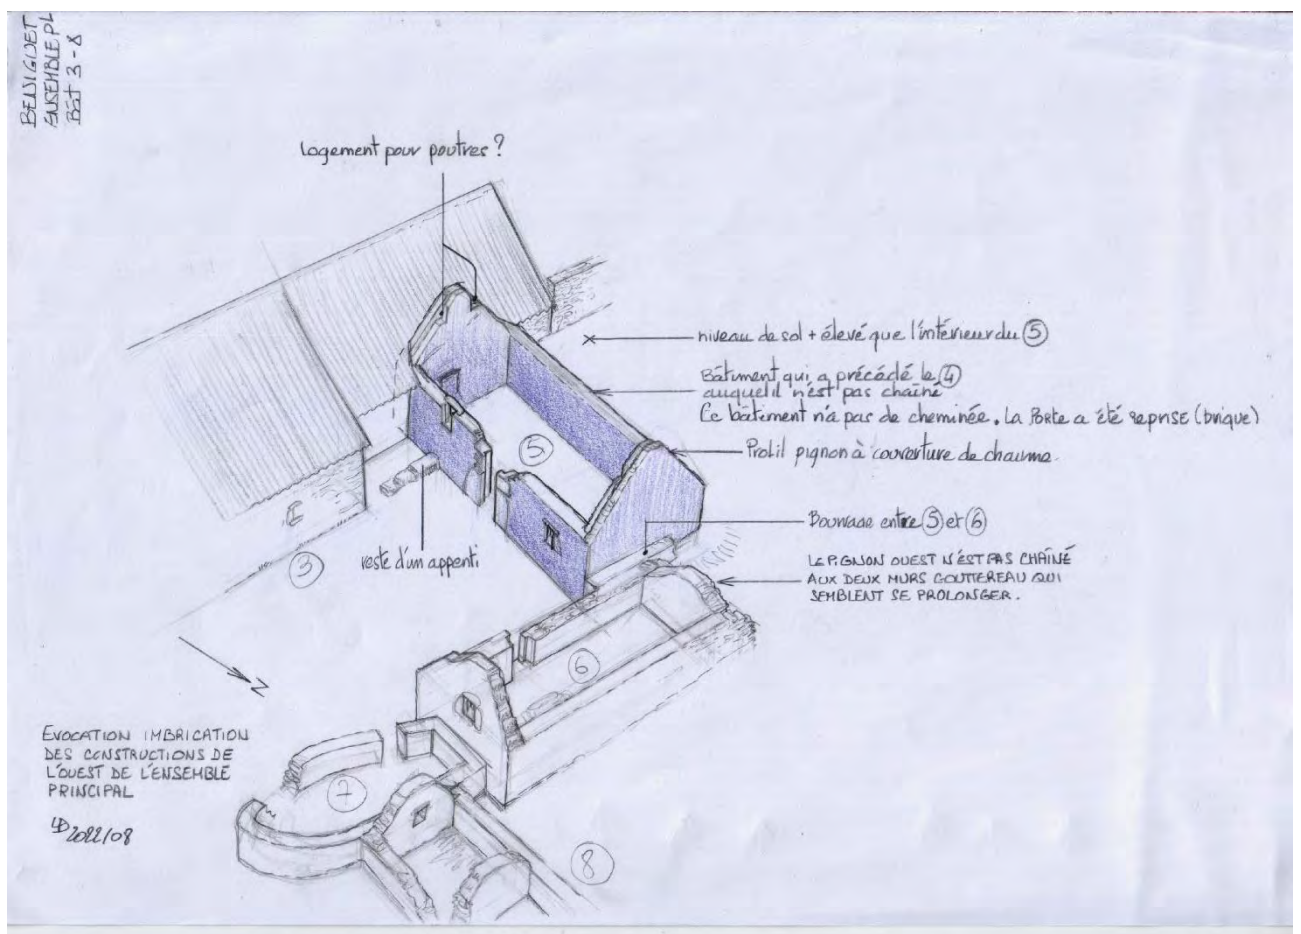 BENIGUET
ENSEMBLE PL
Bât 3-8
Logement pour poutres ?
niveau de sol + élevé que l'intérieur du 5
Bâtiment qui a précédé le 4
auquel il n'est pas chaîné
Ce bâtiment n'a pas de cheminée. La Porte a été reprise (brique)
Profil pignon à couverture de chaume.
Bourrage entre 5 et 6
LE PIGNON OUEST N'EST PAS CHAÎNÉ
AUX DEUX MURS GOUTTEREAU QUI
SEMBLENT SE PROLONGER.
5
reste d'un appenti
3
6
N
EVOCATION IMBRICATION
DES CONSTRUCTIONS DE
L'OUEST DE L'ENSEMBLE
PRINCIPAL
2022/08
7
8